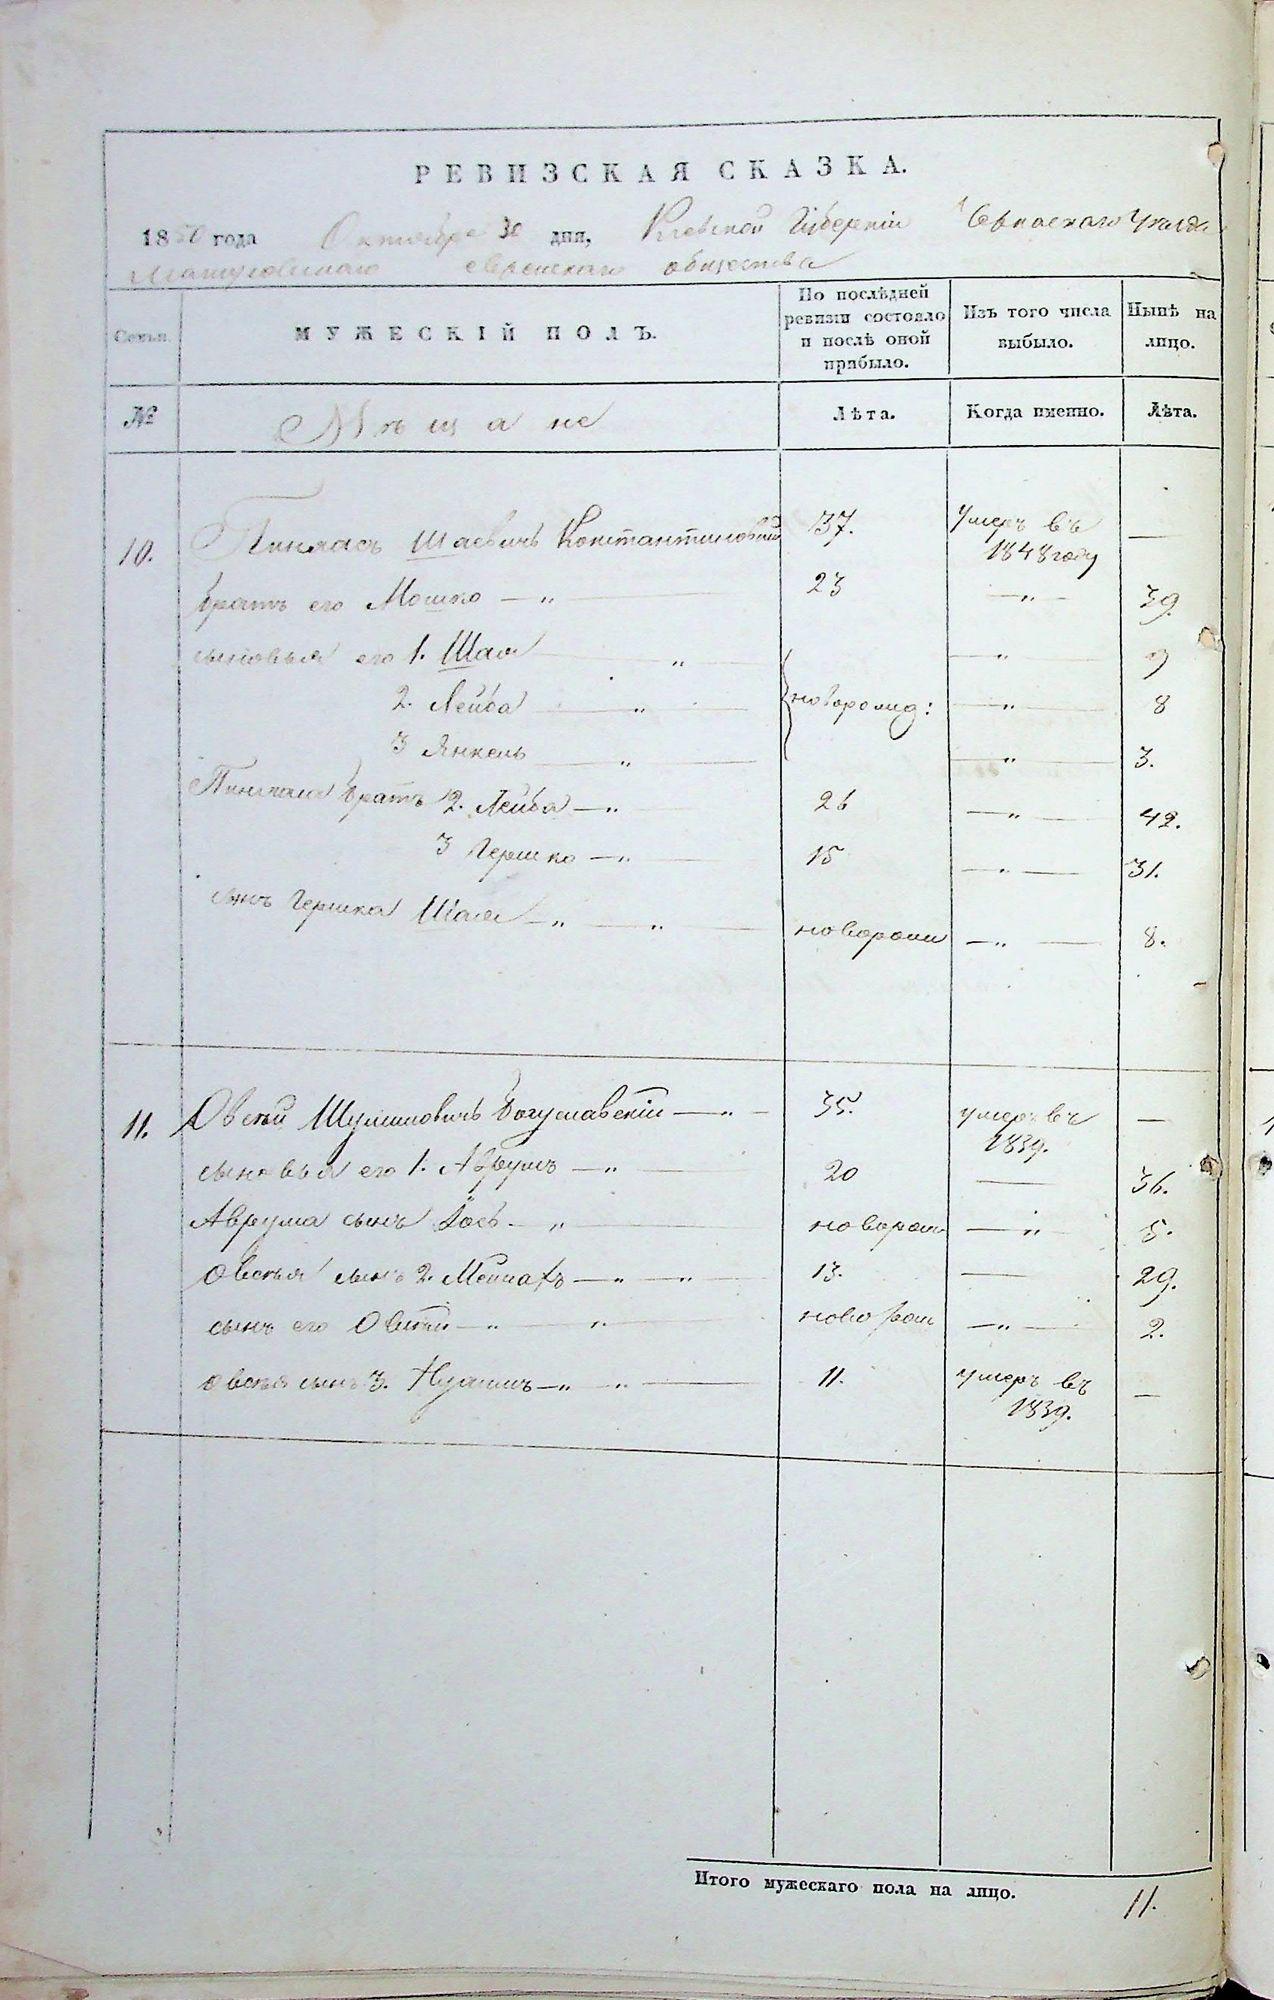 РЕВИЗСКАЯ СКАЗКА.
1850 года Октября 30 дня, Кіевской Губерніи Черкаскаго Уѣзда
Матусовскаго еврейскаго общества
Семьи. МУЖЕСКІЙ ПОЛЪ. По послѣдней ревизіи состояло и послѣ оной прибыло. Изъ того числа выбыло. Нынѣ на лицо.
№ Мѣщане Лѣта. Когда именно. Лѣта.
10. Пинхасъ Шаевичъ Константиновскій 37. Умеръ въ 1848 году —
братъ его Мошко — „ — 23 — „ — 39.
сыновья его 1. Шая — „ — „ — 9
2. Лейба — „ — новорожд: — „ — 8
3 Янкель — „ — „ — 3.
Пинхаса братъ 2. Лейба — „ — 26 — „ — 42.
3 Гершко — „ — 15 — „ — 31.
сынъ Гершка Шая — „ — „ — новорож — „ — 8.
11. Овсѣй Шулимовичъ Богуславскій — „ — 35. умеръ въ 1839. —
сыновья его 1. Аврумъ — „ — 20 — 36.
Аврума сынъ Іось — „ — новорож — „ — 5.
Овсѣя сынъ 2. — „ — „ — 13. — 29.
сынъ его Овсѣй — „ — „ — новорож — „ — 2.
Овсѣя сынъ 3. — „ — „ — 11. умеръ въ 1839. —
Итого мужескаго пола на лицо. 11.